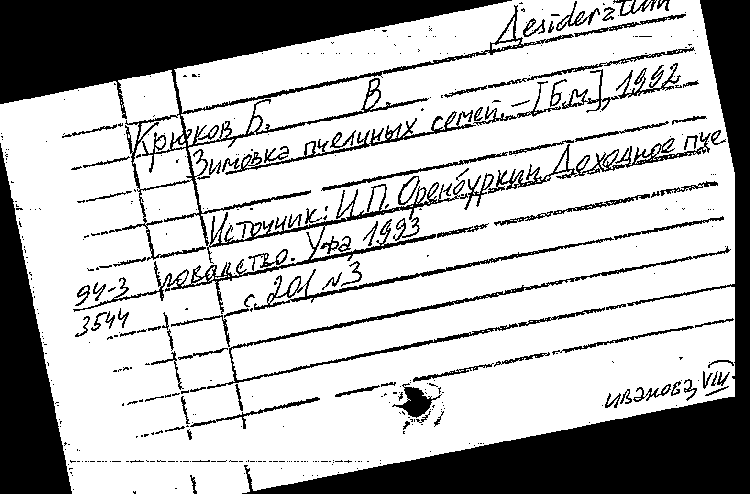 Desideratum
Крюков, Б. В.
Зимовка пчелиных семей. – [Б.м.], 1992
Источник: И.П. Оренбуркин Доходное пче
ловодство. Уфа, 1993
94-3
3544
с. 201, №3
иванова, VIII